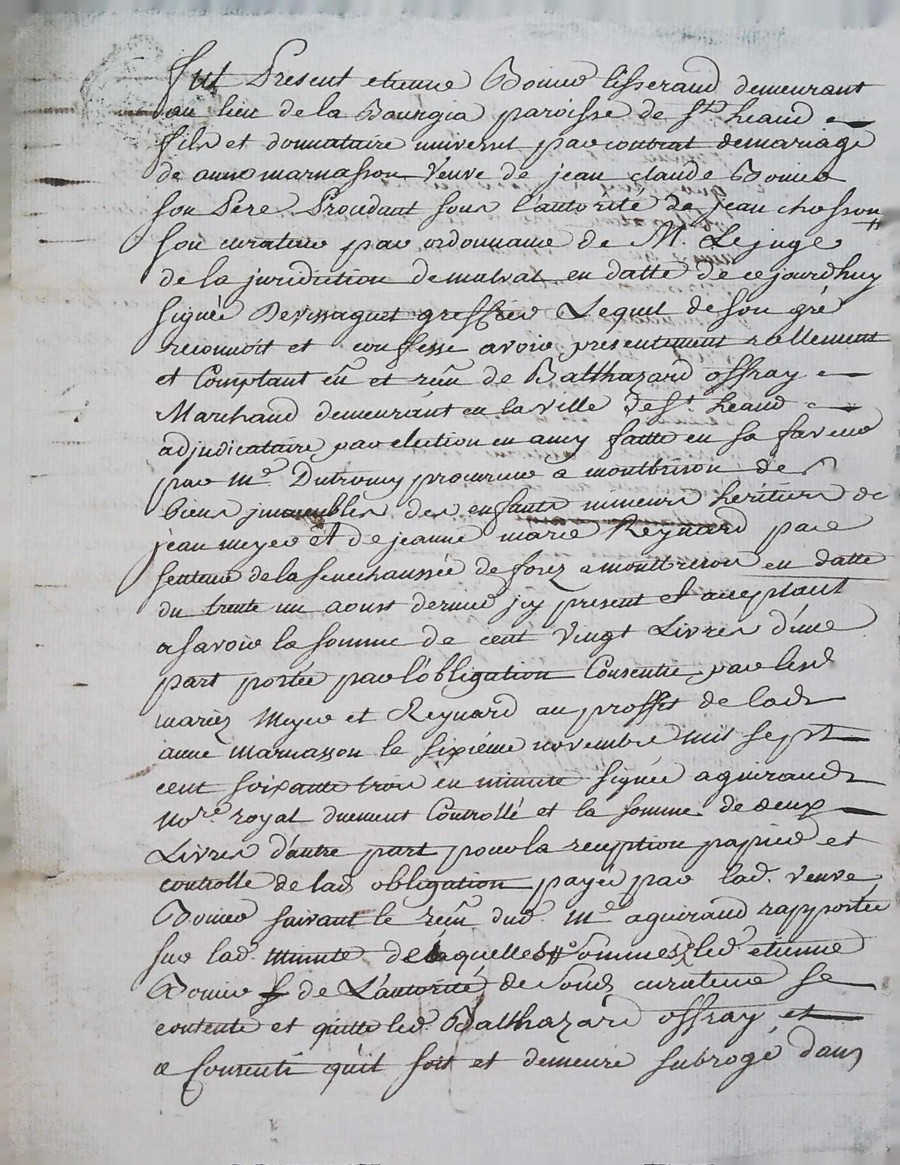 fut Present etienne Boiner tisserand demeurant
au lieu de la Bourgia paroisse de St. heand
fils et donnataire universel par contrat de mariage
de anne marnasson veuve de jean claude Boiner
son Pere Procedant sous l'autorité de jean chosson
son curateur par ordonnance de Mr. Lejuge
de la juridiction de malval en datte de cejourdhuy
signée greffier Lequel de son gré
reconnoit et confesse avoir presentement réellement
et Comptant eu et reçu de Balthazard offray
Marchand demeurant en la ville de St. heand
adjudicataire par election en amy faitte en sa faveur
par Me. Dutromy procureur a montbrison des
biens jmmeubles des enfants mineurs heritiers de
jean meyer et de jeanne marie Reynard par
sentence de la senechaussée de forez a montbrison en datte
du trente un aoust dernier jcy present et acceptant
a savoir la somme de cent vingt Livres d'une
part portée par l'obligation Consentie par lesd
mariez Meyer et Reynard au proffit de lade
anne Marnasson le sixiéme novembre mil sept
cent soixante trois en minute signée aguiraud
nore royal duement Controllé et la somme de deux
Livres d'autre part pour la reception papier et
controlle de lad obligation payée par lad. veuve
Boiner suivant le reçu dud. Me aguiraud rapportée
sur lad. minute desquelles sommes led etienne
Boiner de L'autorité de sond curateur se
contente et quitte led. Balthazard offray et
a Consenti qu'il soit et demeure subrogé dans